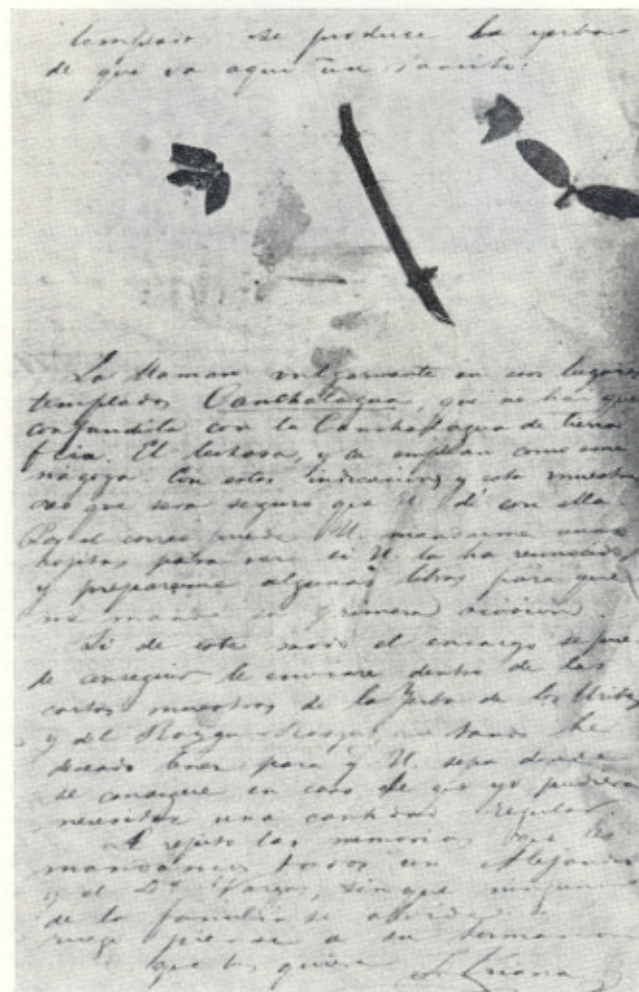 templado, se produce la yerba
de que va aqui un ramito:
La llaman vulgarmente en esos lugares
templados Canchalagua, que no hai que
confundirla con la Canchalagua de tierra
fria. Es lechosa, y la emplean como una
Con estas indicaciones y esta muestra
creo que será seguro que U. dé con ella
Por el correo puede U. mandarme unas
hojitas para ver si U. la ha reconocido
y prepararme algunas libras para que
me mande en primera ocasion.
Si de este modo el encargo se pue-
de conseguir le enviaré dentro de las
cartas muestras de la Yerba de los
y del que tanto he
deseado tener para q U. sepa donde
se consigue en caso de que yo pudiera
necesitar una cantidad regular.
Le repito las memorias que les
mandamos todos con Alejandro
y el Dr. Vargas, sin que ninguno
de la familia se olvide
piense a su hermano
que los quiere J. Triana